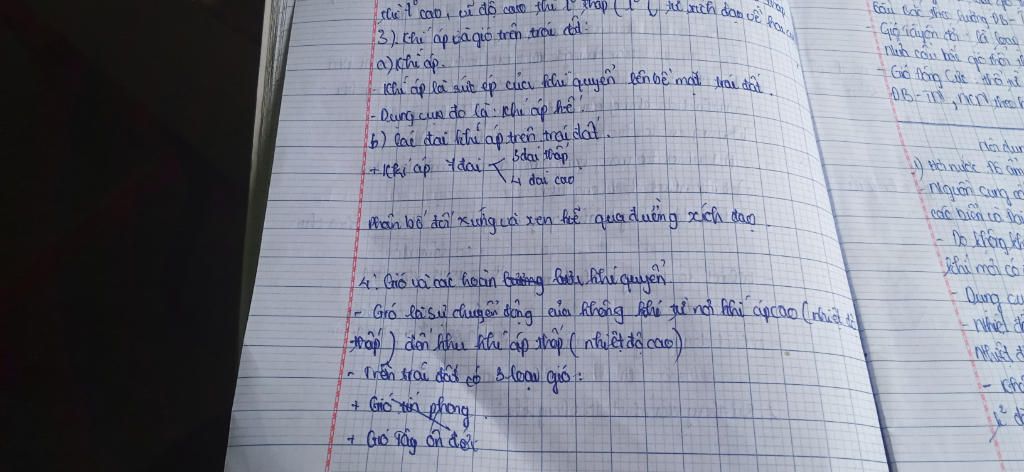 cao, vĩ độ cao thì t° thấp ( t° ↓ từ xích đạo về
3). Khí áp và gió trên trái đất:
a) Khí áp.
- Khí áp là sức ép của khí quyển lên bề mặt trái đất.
- Dụng cụ đo là: Khí áp kế.
b) Các đai khí áp trên trái đất.
+ Khí áp 7 đai < 3 đai thấp
4 đai cao
Phân bố đối xứng và xen kẽ qua đường xích đạo
4. Gió và các hoàn lưu khí quyển
- Gió là sự chuyển động của không khí từ nơi khí áp cao ( nhiệt độ
thấp ) đến khu khí áp thấp ( nhiệt độ cao)
- Trên trái đất có 3 loại gió :
+ Gió tín phong
+ Gió Tây ôn đới
hướng ĐB-
- Gió Đông Cực
ĐB-TN,
Nội dun
1)
- Nguồn cung c
các biển
- Do không k
khí mới có
- Dụng cu
- Nhiệt đ
Nhiệt đ
- Khô